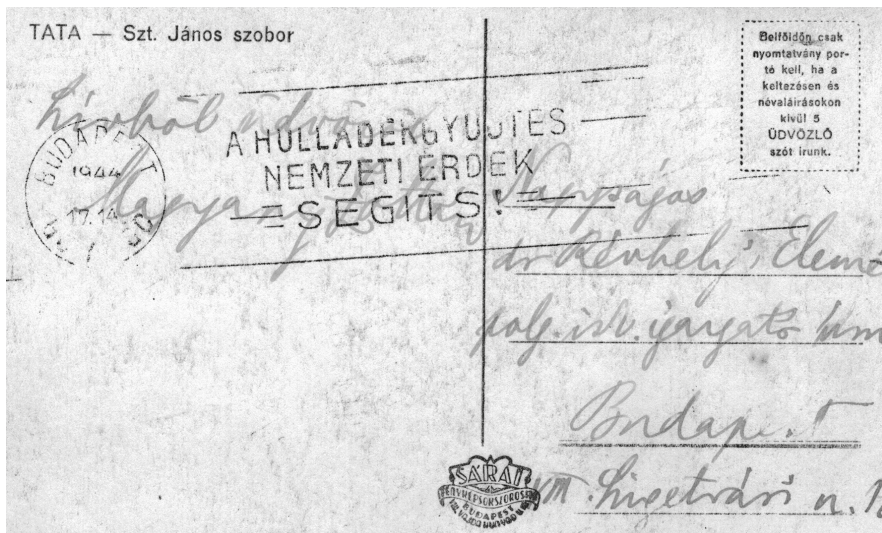 TATA — Szt. János szobor
Belföldön csak
nyomtatvány por-
tó kell, ha a
keltezésen és
névaláírásokon
kívül 5
ÜDVÖZLŐ
szót írunk.
Szívből üdvözli
BUDAPEST
1944
17.14
A HULLADÉKGYŰJTÉS
NEMZETI ÉRDEK
SEGÍTS!
Magyar
Nagyságos
dr Révhelyi Elemér
polg. isk. igazgató
Budapest
VIII. Szigetvári u.
SÁRAI
FÉNYKÉPSOKSZOROSÍTÓ
BUDAPEST